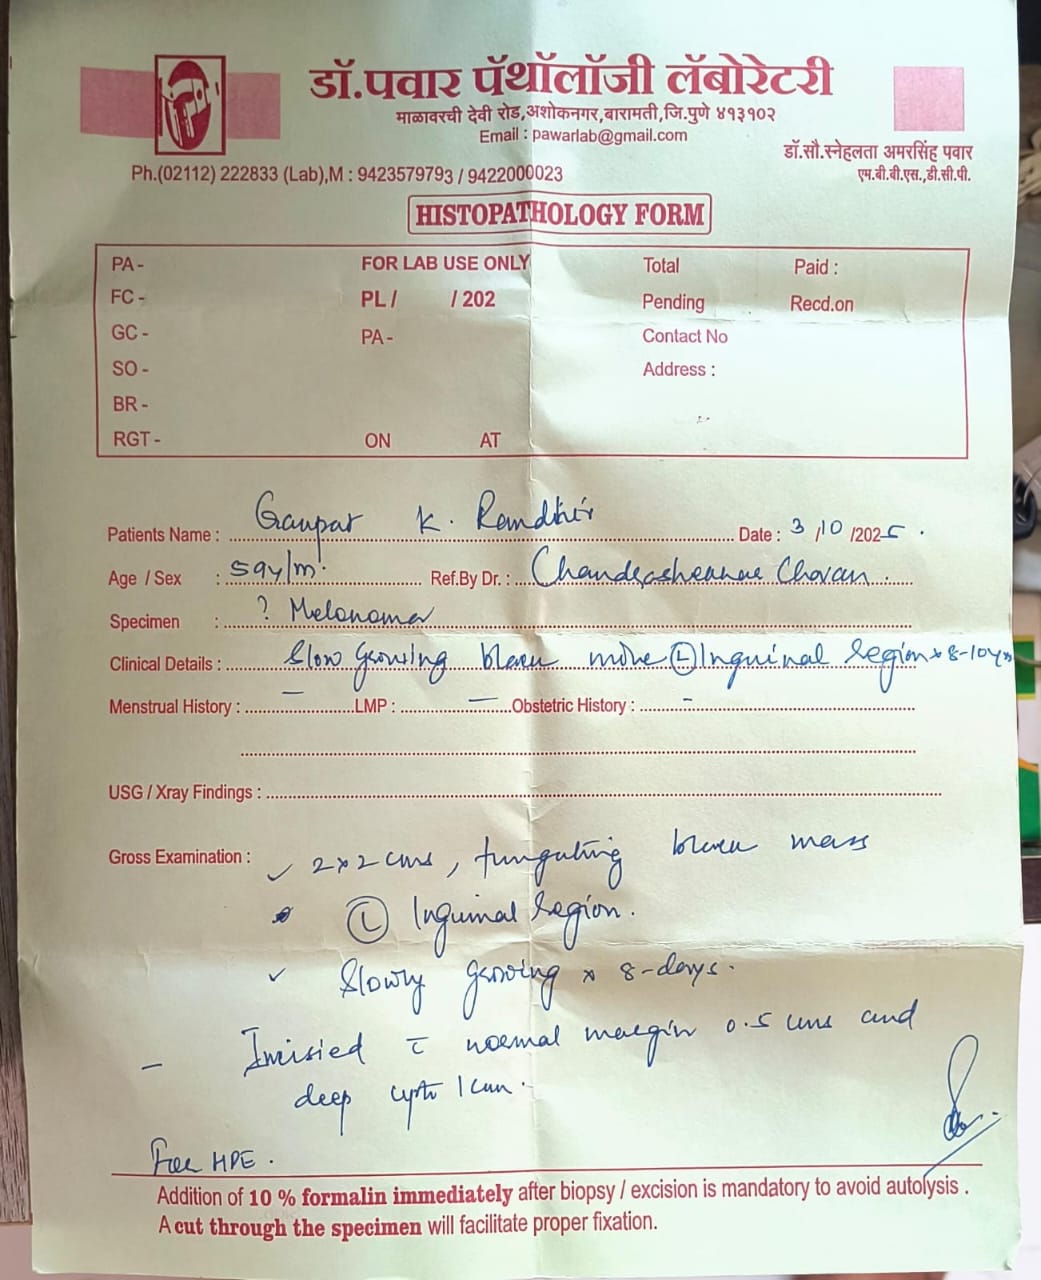 डॉ.पवार पॅथॉलॉजी लॅबोरेटरी
माळावरची देवी रोड,अशोकनगर,बारामती,जि.पुणे ४१३१०२
Email : pawarlab@gmail.com
डॉ.सौ.स्नेहलता अमरसिंह पवार
एम.बी.बी.एस.,डी.सी.पी.
Ph.(02112) 222833 (Lab),M : 9423579793 / 9422000023
HISTOPATHOLOGY FORM
PA - FOR LAB USE ONLY Total Paid :
FC - PL / / 202 Pending Recd.on
GC - PA - Contact No
SO - Address :
BR -
RGT - ON AT
Patients Name : Ganpat K. Randhir Date : 3 /10 /2025 .
Age / Sex : 59y/m. Ref.By Dr. : Chavan .
Specimen : ? Melonoma
Clinical Details : Slow growing (L) Inguinal region x 8-10yrs
Menstrual History : — LMP : — Obstetric History : -
USG / Xray Findings :
Gross Examination : ✓ 2x2 cms , fungating mass
(L) Inguinal region.
✓ Slowly growing x 8-days.
— normal margin 0.5 cms and
deep 1 cm.
For HPE .
Addition of 10 % formalin immediately after biopsy / excision is mandatory to avoid autolysis .
A cut through the specimen will facilitate proper fixation.